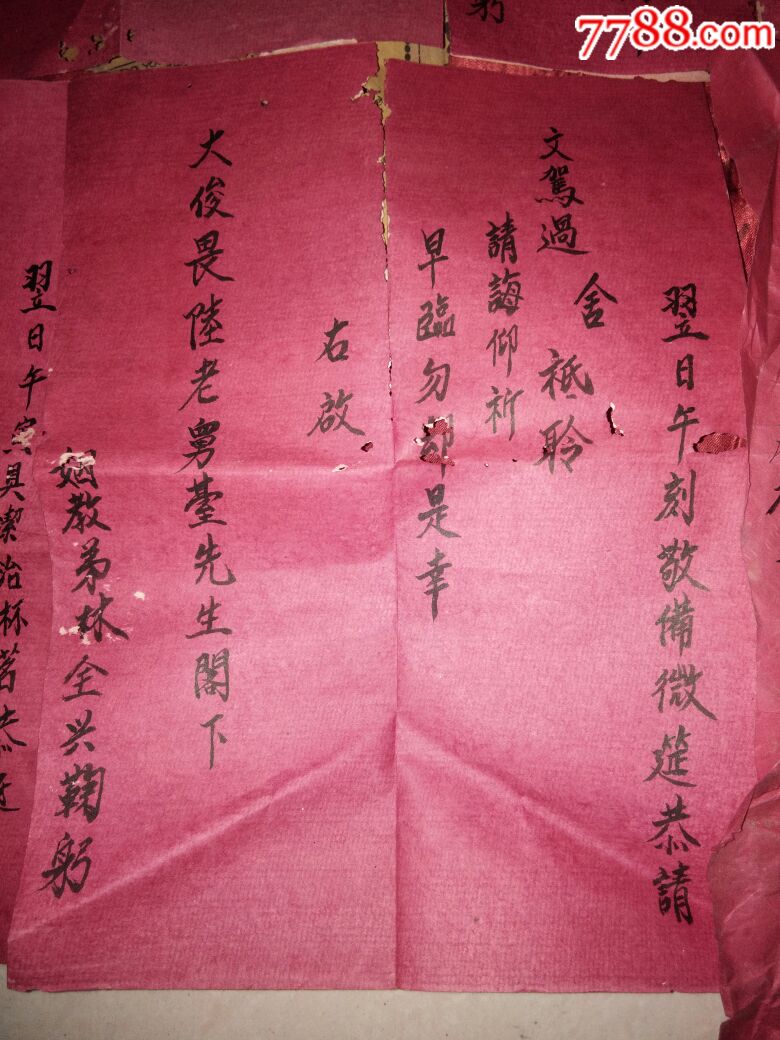 7788.com
躬
翌日午刻敬備微筵恭請
文駕過舍祗聆
請誨仰祈
早臨勿却是幸
右啟
大俊畏陸老舅臺先生閣下
姻教弟林全兴鞠躬
翌日午具潔治杯茗恭迓